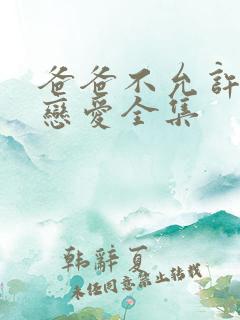 爸爸不允許
戀愛全集
韩辞夏
未经同意禁止转载